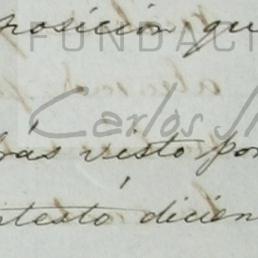 posición qu
FUNDACI
Carlos
rás visto por
ntestó dicien